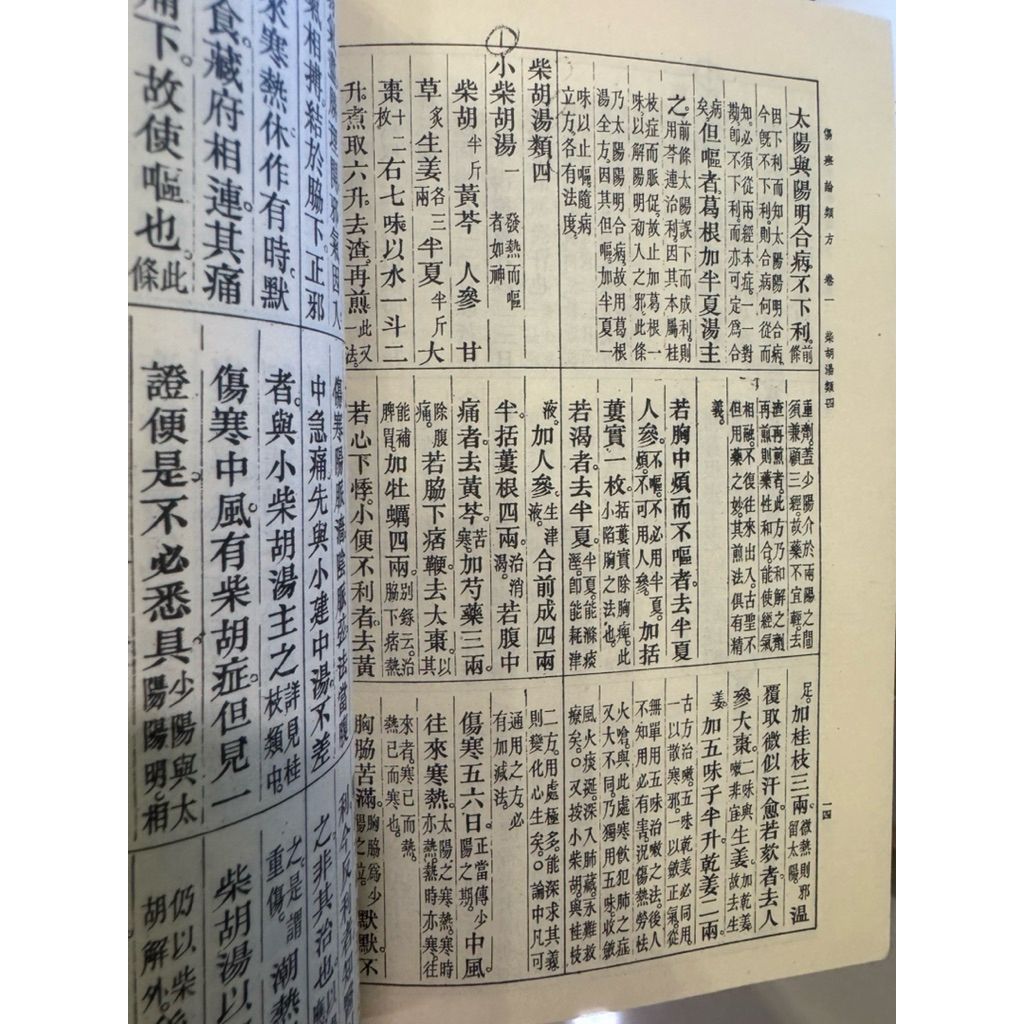 傷寒論類方 卷一 柴胡湯類四
一四
太陽與陽明合病不下利。前條
因下利而知太陽陽明合病。
今既不下利。則合病何從而
知。必須從兩經本症。一一對
勘。即不下利。而亦可定爲合
病矣。但嘔者。葛根加半夏湯主
之。前條太陽誤下而成利。則
用芩連治利。因其本屬桂
枝症而脈促。故止加葛根一
味以解陽明初入之邪。此條
乃太陽陽明合病。故用葛根
湯全方。因其但嘔。加半夏一
味以止嘔。隨病
立方。各有法度。
柴胡湯類四
小柴胡湯一 發熱而嘔
者如神
柴胡半斤 黃芩 人參 甘
草炙 生姜各三兩 半夏半斤 大
棗十二枚 右七味以水一斗二
升。煮取六升。去渣。再煎一此又
法。
重劑。蓋少陽介於兩陽之間
須兼顧三經。故藥不宜輕。去
渣再煎者。此方乃和解之劑
再煎則藥性和合。能使經氣
相融。不復往來出入。古聖不
但用藥之妙。其煎法俱有精
義。
若胸中煩而不嘔者。去半夏
人參。不嘔。不必用半夏。煩。不可用人參。加括
蔞實一枚。括蔞實除胸痺。此小陷胸之法也。
若渴者。去半夏。半夏能滌痰濕。即能耗津
液。加人參。生津液。合前成四兩
半。括蔞根四兩。治消渴。若腹中
痛者。去黃芩。苦寒。加芍藥三兩。
除腹痛。若脇下痞鞕。去大棗。以其
能補脾胃。加牡蠣四兩。別錄云。治脇下痞熱
若心下悸。小便不利者。去黃
足。加桂枝三兩。微熱則邪留太陽。溫
覆取微似汗愈。若欬者。去人
參大棗。二味與嗽非宜 生姜。加乾姜。故去生
姜。加五味子半升。乾姜二兩。
古方治嗽。五味乾姜必同用。
一以散寒邪。一以斂正氣。從
無單用五味治嗽之法。後人
不知用必有害。況傷熱勞怯
火嗆。與此處寒飲犯肺之症
又大不同。乃獨用五味。收斂
風火痰涎。深入肺藏。永難救
療矣。○又按小柴胡。與桂枝
二方。用處極多。能深求其義
則變化心生矣。○論中凡可
通用之方。必
有加減法。
傷寒五六日。正當傳少陽之期。中風
往來寒熱。太陽之寒熱。寒時亦熱。熱時亦寒。往
來者。寒已而熱。
熱已而寒也。
胸脇苦滿。胸脇爲少陽之位。默默不
氣相搏。結於脇下。正邪
來寒熱。休作有時。默
食。藏府相連。其痛
下。故使嘔也。此條
中急痛。先與小建中湯。不差
者。與小柴胡湯主之。詳見桂枝類中。
傷寒中風。有柴胡症。但見一
證便是。不必悉具。少陽與太陽陽明。相
之。非其治也。
之。是謂
重傷。 潮熱
柴胡湯以
仍以柴
胡解外。